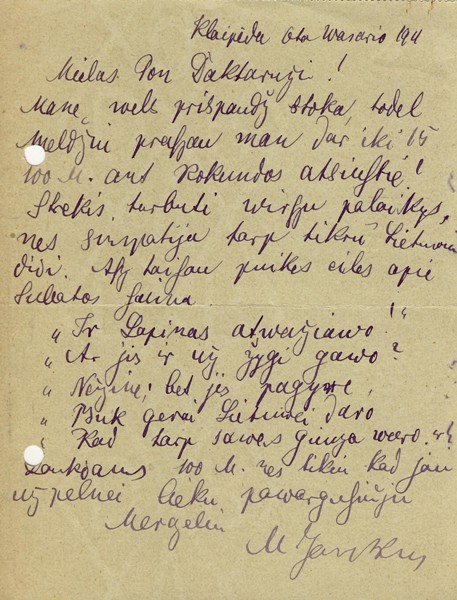 Klaipėda 6ta Wasario 1911
Mielas Pon Daktaruži!
Mane wels prispaudž stoka, todel
meldžiu praszau man dar iki 15
100 M. ant Rokundos atsiųsti!
Stekis turbuti wirszu palaikys,
nes simpatija tarp tikrū Lietuwiu
didi. Asz taisau puikes eiles apie
Subatos
„Ir Lapinas atwažiawo!"
„Ar jis ir už žygi gawo?
„Nežine; bet jis pagyre,
„Buk gerai Lietuwei daro
„Kad tarp sawęs ginza waro."
Laukdams 100 M. nes tikiu kad jau
užpelnei lieku pawargusiuju
Mergeliu
M Jankus